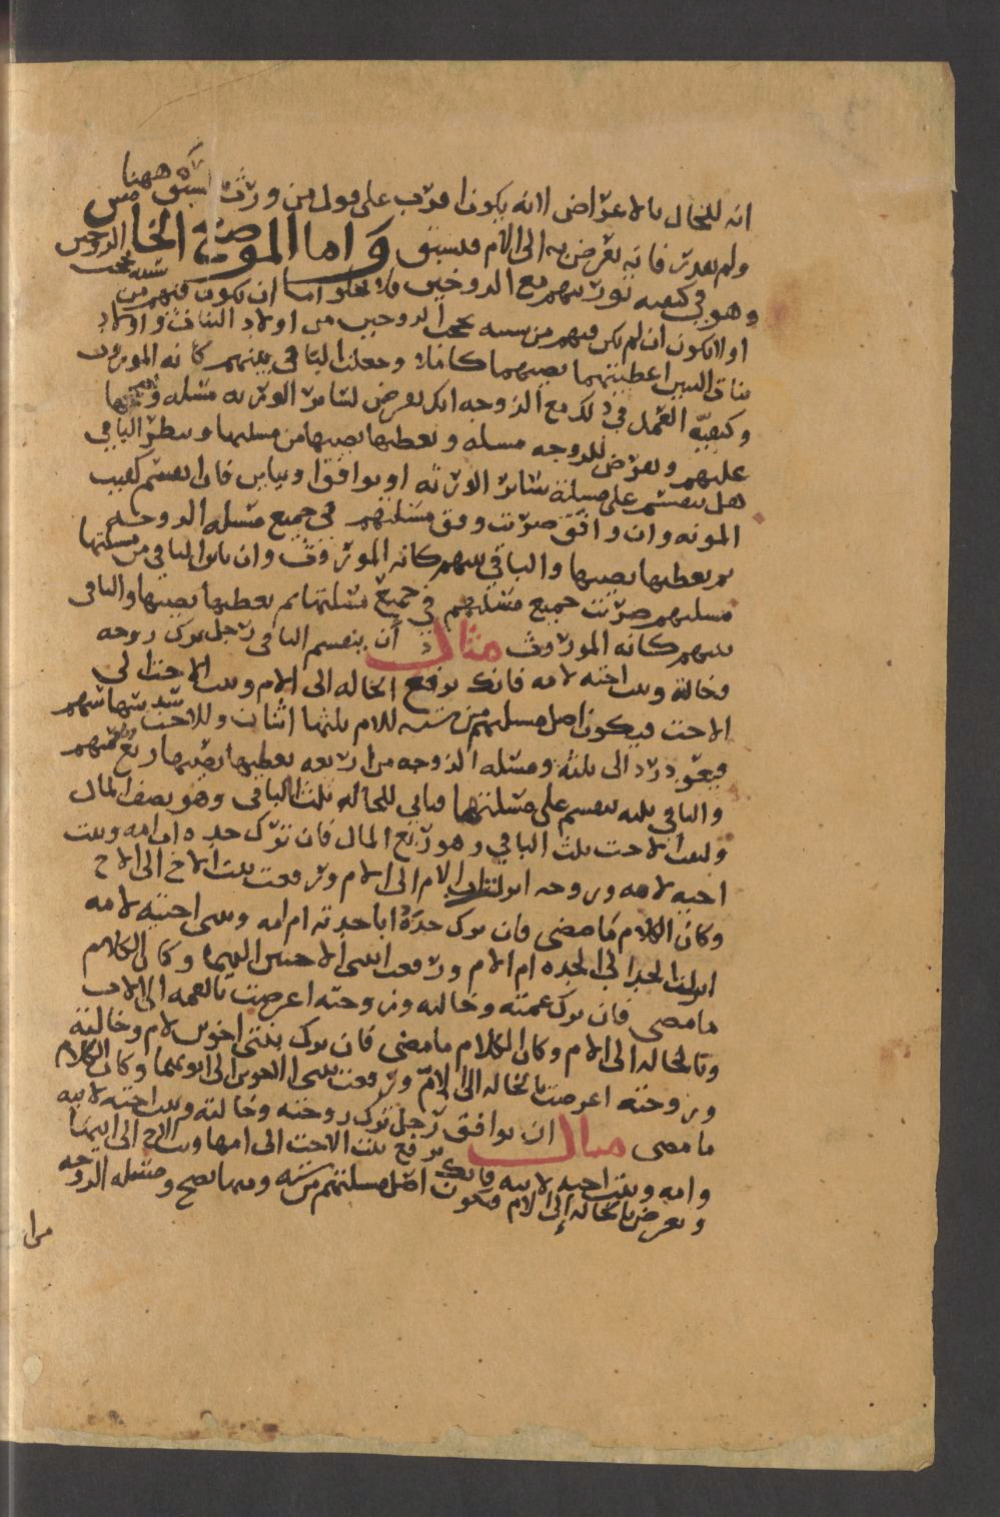 انه للخال بالاعتراض لانه يكون اقرب على قول من ورث فيستوي ههنا
ولم يعد فانه يعرض به الى الام فيستوي واما الموضع الخامس
وهو في كيفيه توريثهم مع الزوجين فلا يخلو اما ان يكون فيهم من يحجب الزوجين
اولا يكون ان لم يكن فيهم من يحجب الزوجين من اولاد البنات واولاد
بنات البنين اعطيتهما نصيبهما كاملا وجعلت الباقي بينهم كانه الموروث
وكيفية العمل في ذلك مع الزوجه انك تعرض لسائر الورثه مسله وتصححها
عليهم وتعرض للزوجه مسله وتعطيها نصيبها من مسلتها وينظر الباقي
هل ينقسم على مسلة سائر الورثه او يوافق او يباين فان انقسم كفيت
المونه وان وافق ضربت وفق مسلتهم في جميع مسله الزوجه
ثم تعطيها نصيبها والباقي بينهم كانه الموروث وان باين الباقي من مسلتها
مسلتهم ضربت جميع مسلتهم في جميع مسلتها ثم تعطيها نصيبها والباقي
بينهم كانه الموروث مثال ان ينقسم الباقي رجل ترك زوجه
وخالة وبنت اخته لامه فانك ترفع الخاله الى الام وبنت الاخت الى
الاخت فيكون اصل مسلتهم من سته للام ثلثها اثنان وللاخت سدسها سهم
فيعود رد الى ثلثه ومسله الزوجه من اربعه تعطيها نصيبها ربع سهم
والباقي ثلثه ينقسم على مسلتهما فياتي للخاله ثلثا الباقي وهو نصف المال
ولبنت الاخت ثلث الباقي وهو ربع المال فان ترك جده ابا امه وبنت
اخيه لامه وزوجه انزلت اب الام الى الام ورفعت بنت الاخ الى الاخ
وكان الكلام كما مضى فان ترك جده ابا جدته ام امه وبنتي اختيه لامه
انزلت الجد الى الجده ام الام ورفعت ابنتي الاختين اليهما وكان الكلام
ما مضى فان ترك عمته وخالته وزوجته اعرضت بالعمه الى الاب
وبالخاله الى الام وكان الكلام ما مضى فان ترك بنتي اخوين لام وخالته
وزوجته اعرضت بالخاله الى الام ورفعت بنتي الاخوين الى ابويهما وكان الكلام
ما مضى مثال ان يوافق رجل ترك زوجته وخالته وبنت اخته لابيه
وامه وبنت اخيه لابيه فانك ترفع بنت الاخت الى امها وبنت الاخ الى ابيها
وتعرض بالخاله الى الام فيكون اصل مسلتهم من سته ومنها تصح ومسله الزوجه
من ا